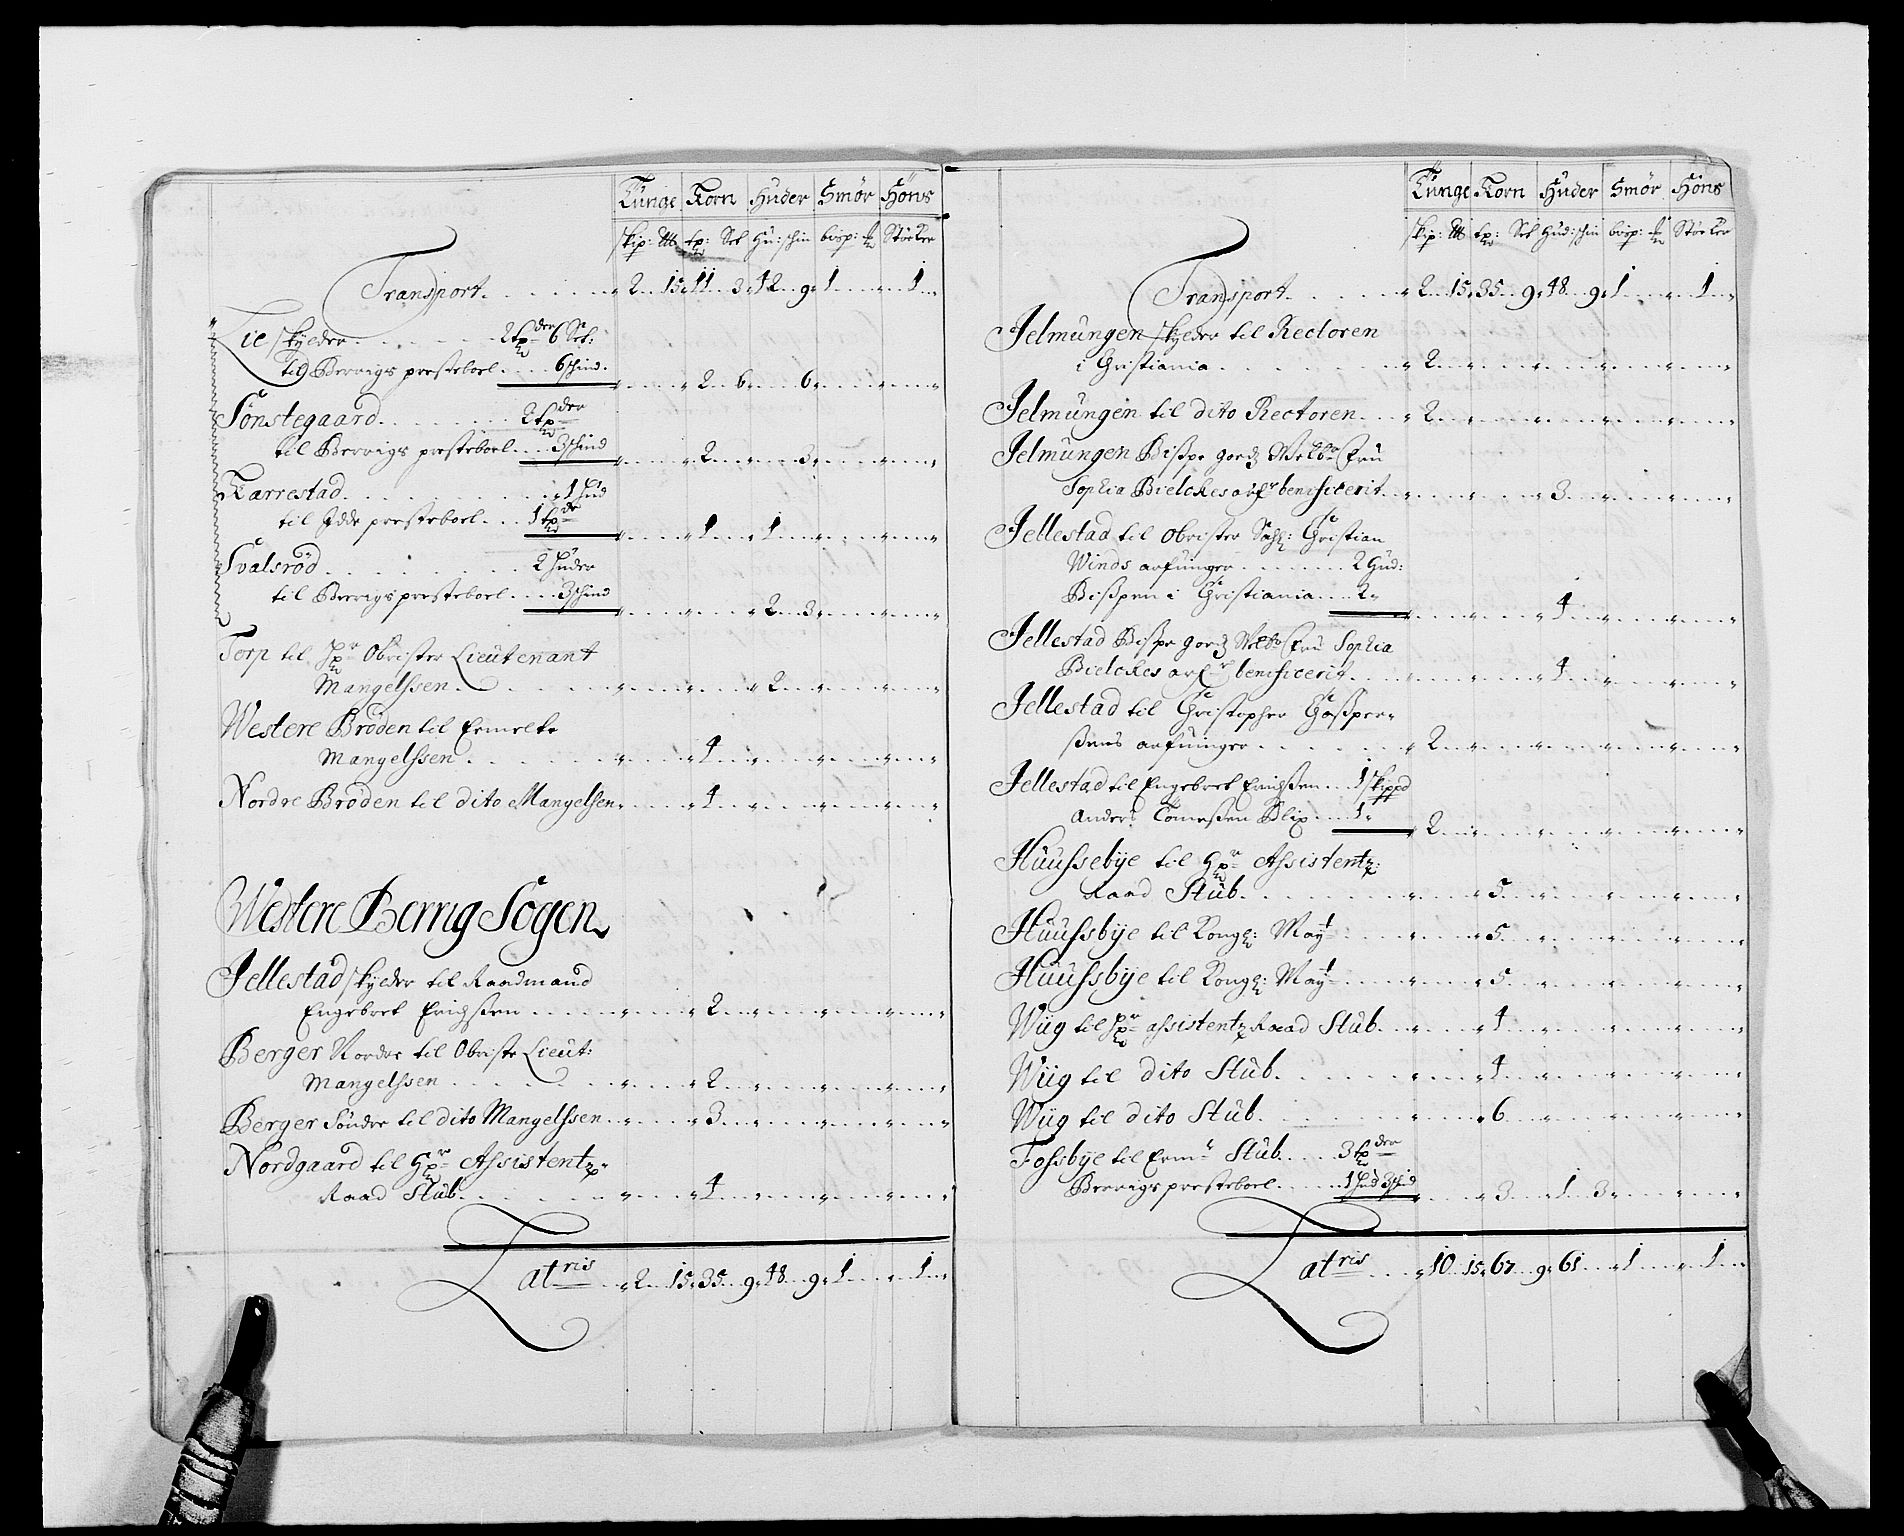 Tunge Korn Huder Smør Høns
skip: tp: Set Hu: schin bisp: Støcker
Transport. 2 15 11 3 42 9 1 1
Lie skylder 2 tpder 6 Set:
Til Berrigs presteboel 6 schind. 2 6 6
Tønstegaard 2 tpder
til Berrigs presteboel 3 schind 2 3
Karrestad 1 hud
til Idde presteboel 1 tpde 1 1
Svalsrød 2 huder
til Berrigs presteboel 3 schind 2 3
Torp til Hr Obrister Lieutenant
Mangelssen 2
Westere Brøden til Ermelte
Mangelssen 4
Nordre Brøden til dito Mangelssen 4
Westere Berrig Sogen
Jellestad skylder til Raadmand
Engebret Erichssen 2
Berger Nordre til Obriste Lieut:
Mangelssen 2
Berger Søndre til dito Mangelssen 3
Nordgaard til Hr Assistentz
Raad Stub 4
Latris 2 15 35 9 48 9 1 1
Tunge Korn Huder Smør Høns
skip: tp: Set Hud: schin bisp: Støcker
Transport. 2 15 35 9 48 9 1 1
Jelmungen skylder til Rectoren
i Christiania 2
Jelmungen til dito Rectoren 2
Jelmungen Bispe godz Welbr fru
Sophia Bielckes arfr benificerit 3
Jellestad til Obrister Sahl: Christian
Winds arfuinger 2 Hud:
Bispen i Christiania 2 4
Jellestad Bispe godz Welb fru Sophia
Bielckes arfr benificerit 4
Jellestad til Christopher Caspersens
arfuinger 2
Jellestad til Engebret Erichssen 1 skippd
Anders Tomessen Blix 1 2
Huussebye til Hr Assistentz:
Raad Stub. 5
Huussbye til Kongl: Mayt 5
Huussbye til Kongl: Mayt 5
Wiig til Hr assistentz Raad Stub 4
Wiig til dito Stub. 4
Wiig til dito Stub. 6
Fossbye til Erm: Stub 3 tpder
Berrigs presteboel 1 hud 3 schid 3 1 3
Latris 10 15 67 9 61 1 1